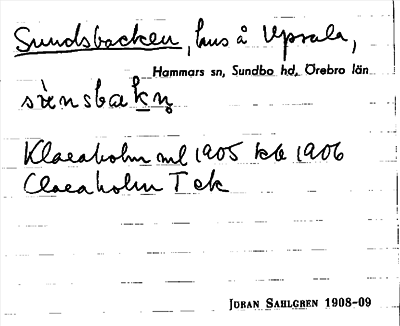 Sundsbacken, hus å Upsala,
Hammars sn, Sundbo hd, Örebro län
Klaraholm ml 1905 kb 1906
Claraholm T ek
JÖRAN SAHLGREN 1908-09